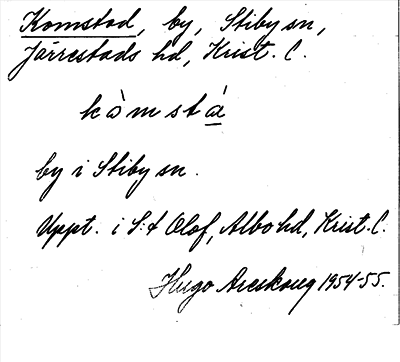 Komstad, by, Stiby sn,
Järrestads hd, Krist. C.
kòmstá
by i Stiby sn.
Uppt. i S:t Olof, Albo hd, Krist. C.
Hugo Areskoug 1954-55.